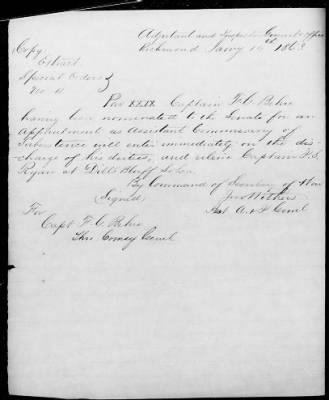 Adjutant and Inspector Genls Office
Richmond Jany 14th 1863
Copy
Extract
Special Orders
No. 11
Par XXIX. Captain F.C. Behre
having been nominated to the Senate for an
appointment as Assistant Commissary of
Subsistence will enter immediately on the dis-
charge of his duties, and relieve Captain
Ryan at Dills Bluff
By Command of Secretary of War
(Signed) Jno Withers
Asst A & I Genl
For
Capt F.C. Behre
Thro Comsy Genl